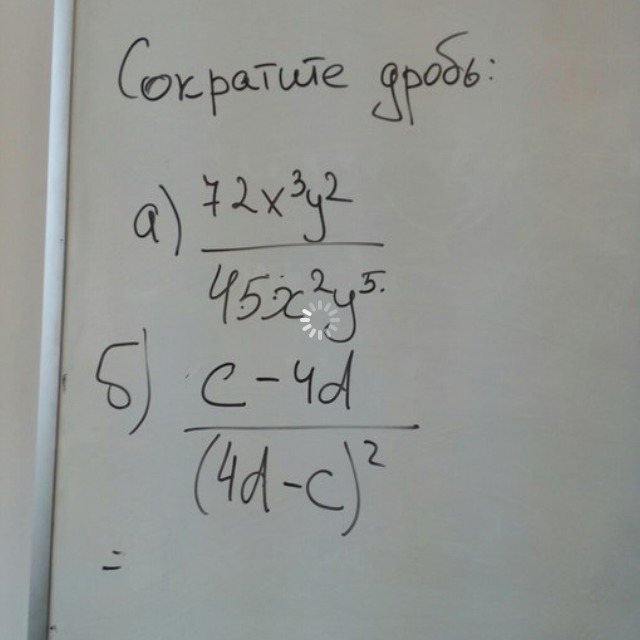 Сократите дробь:
а) 72x³y²
45x²y⁵
б) c - 4d
(4d - c)²
=